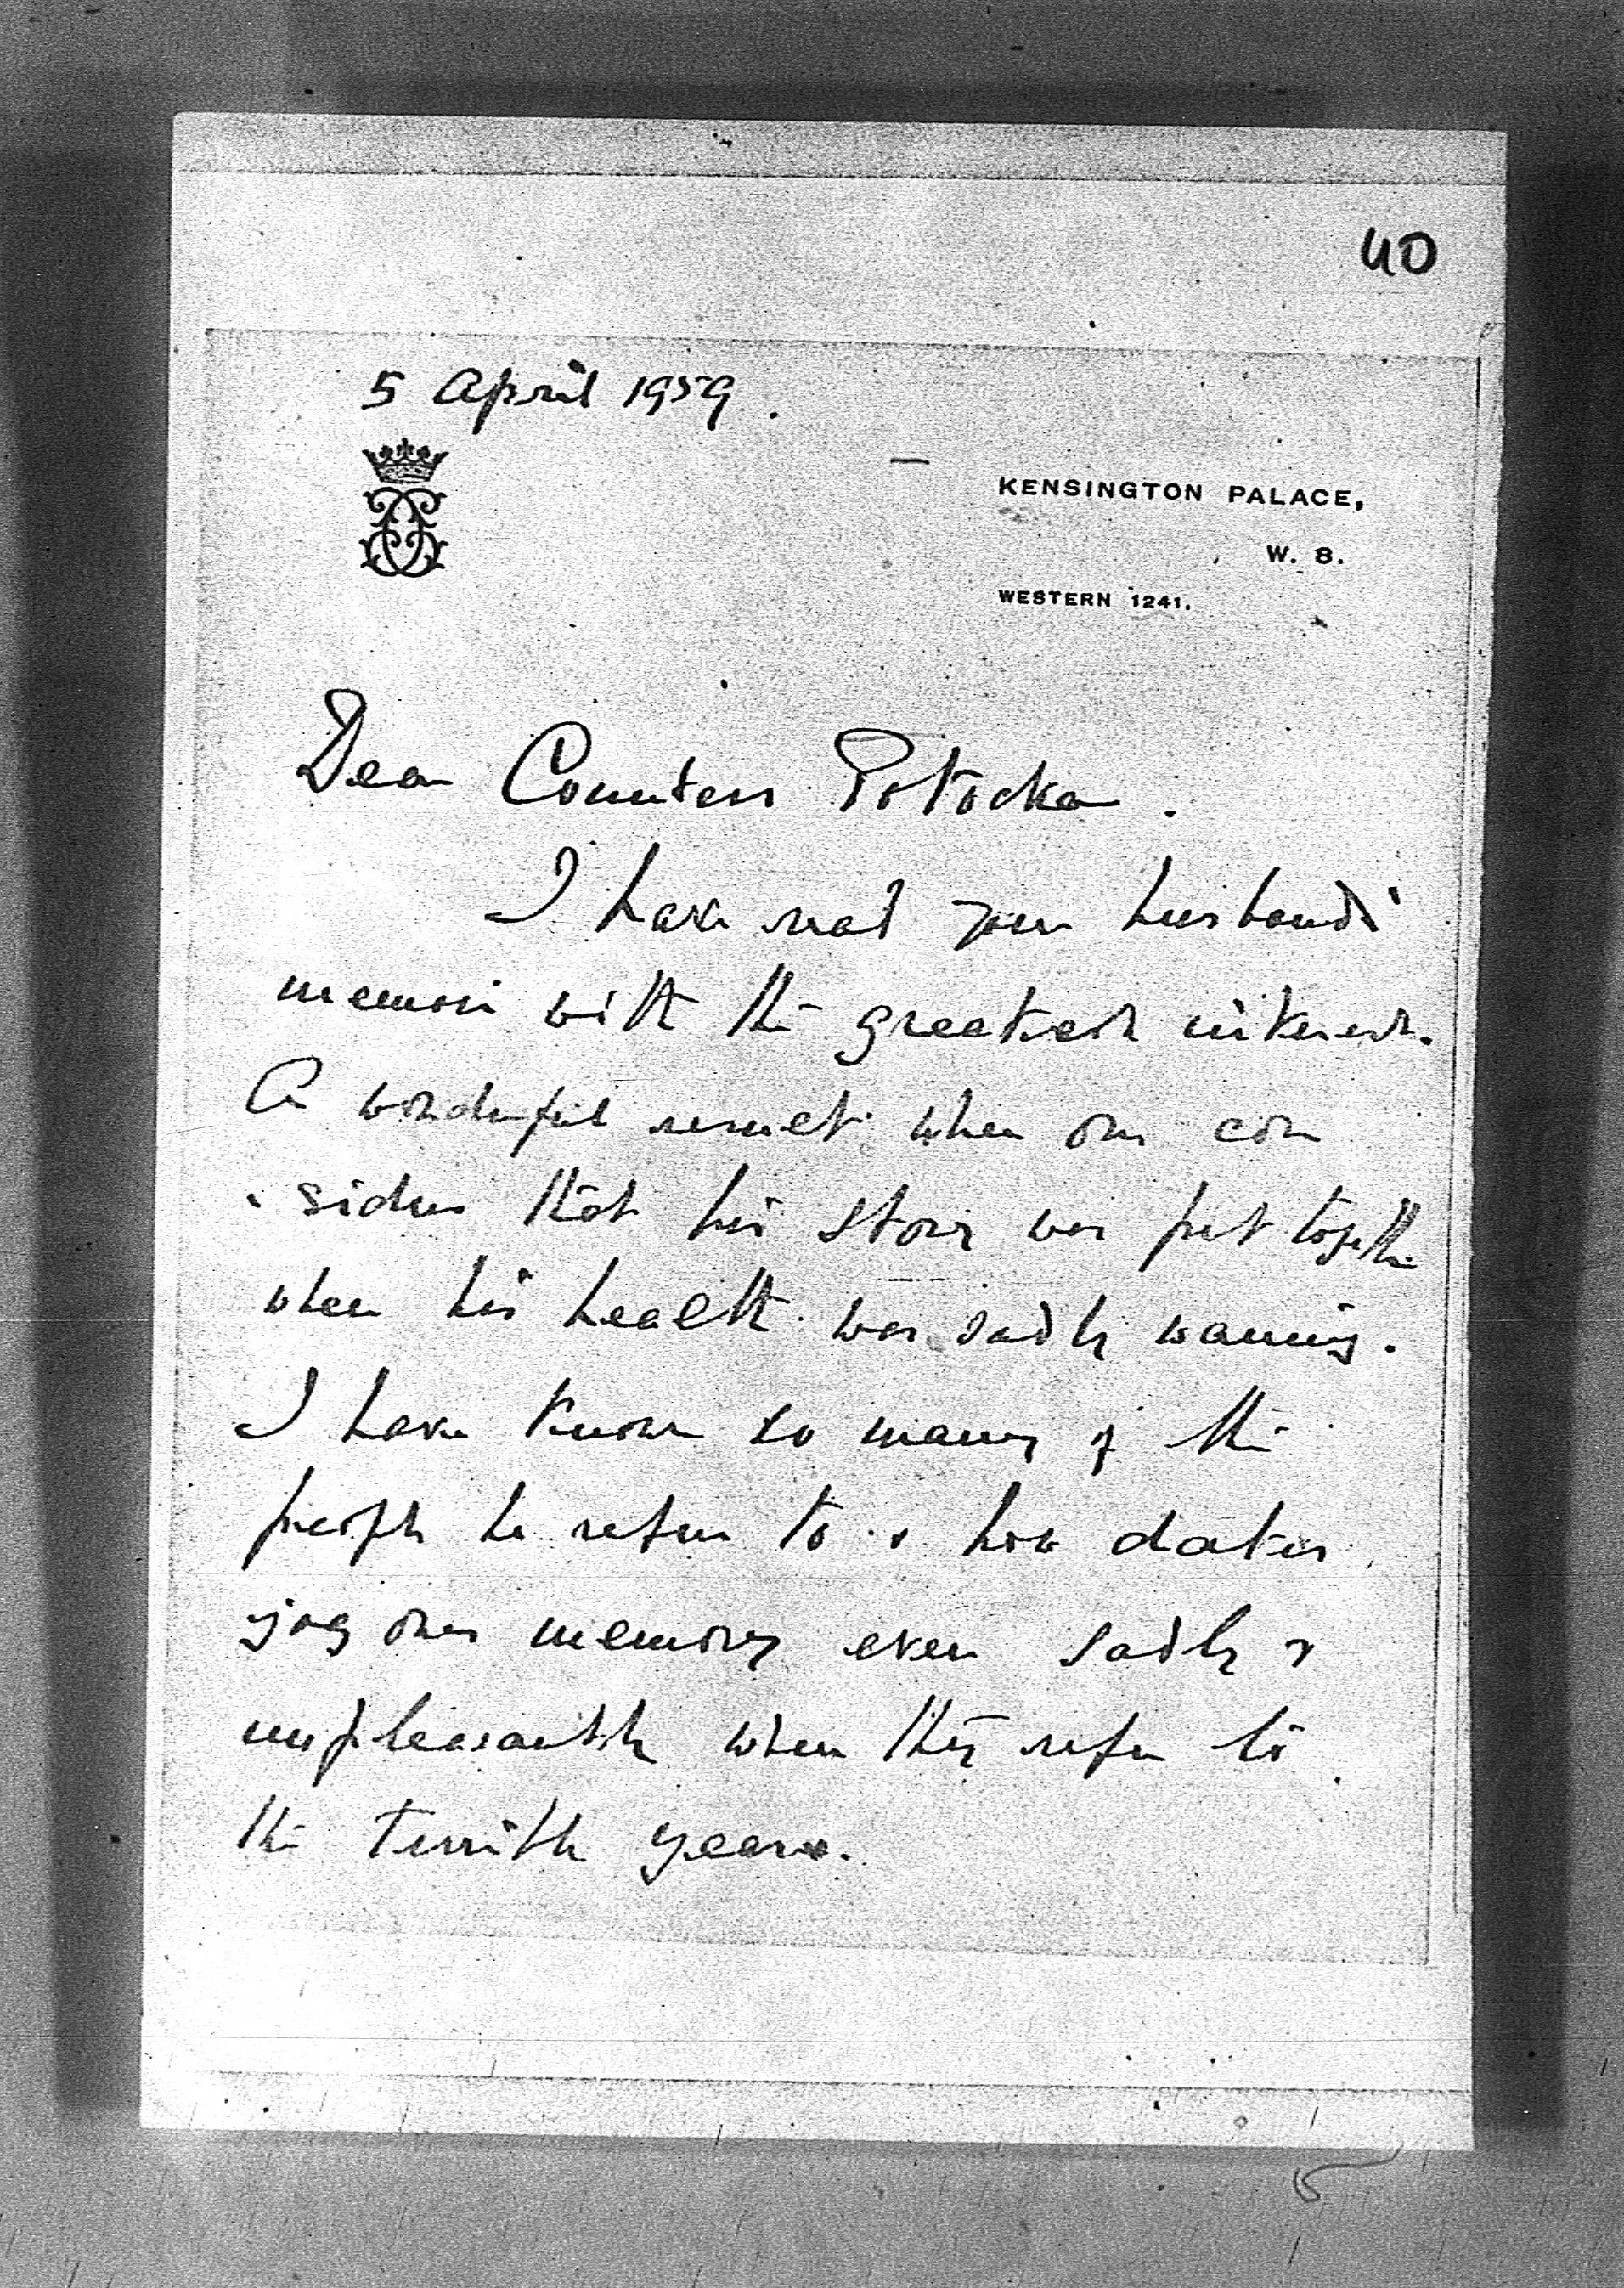 40
5 April 1959.
KENSINGTON PALACE,
W. 8.
WESTERN 1241.
Dear Countess Potocka.
I have read your husbands'
memoir with the greatest interest.
A wonderful result when one con
-siders that his story was put together
when his health was sadly waning.
I have known so many of the
people he refers to & how dates
jog ones memory even sadly &
unpleasantly when they refer to
the terrible years.